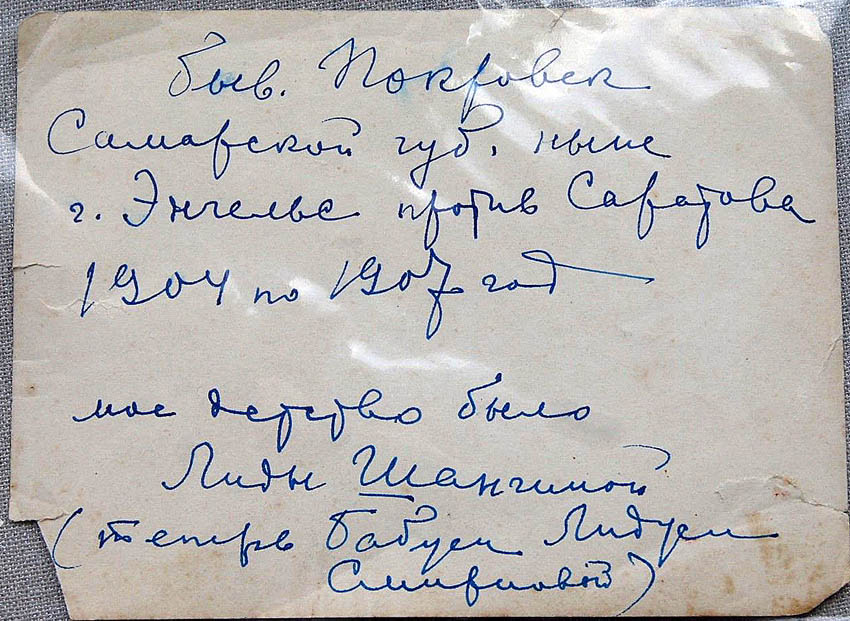 быв. Покровск
Самарской губ. ныне
г. Энгельс против Саратова
1904 по 1907 год
мое детство было
Лиды Шангиной
(теперь бабуси Лидуси
Смирновой)